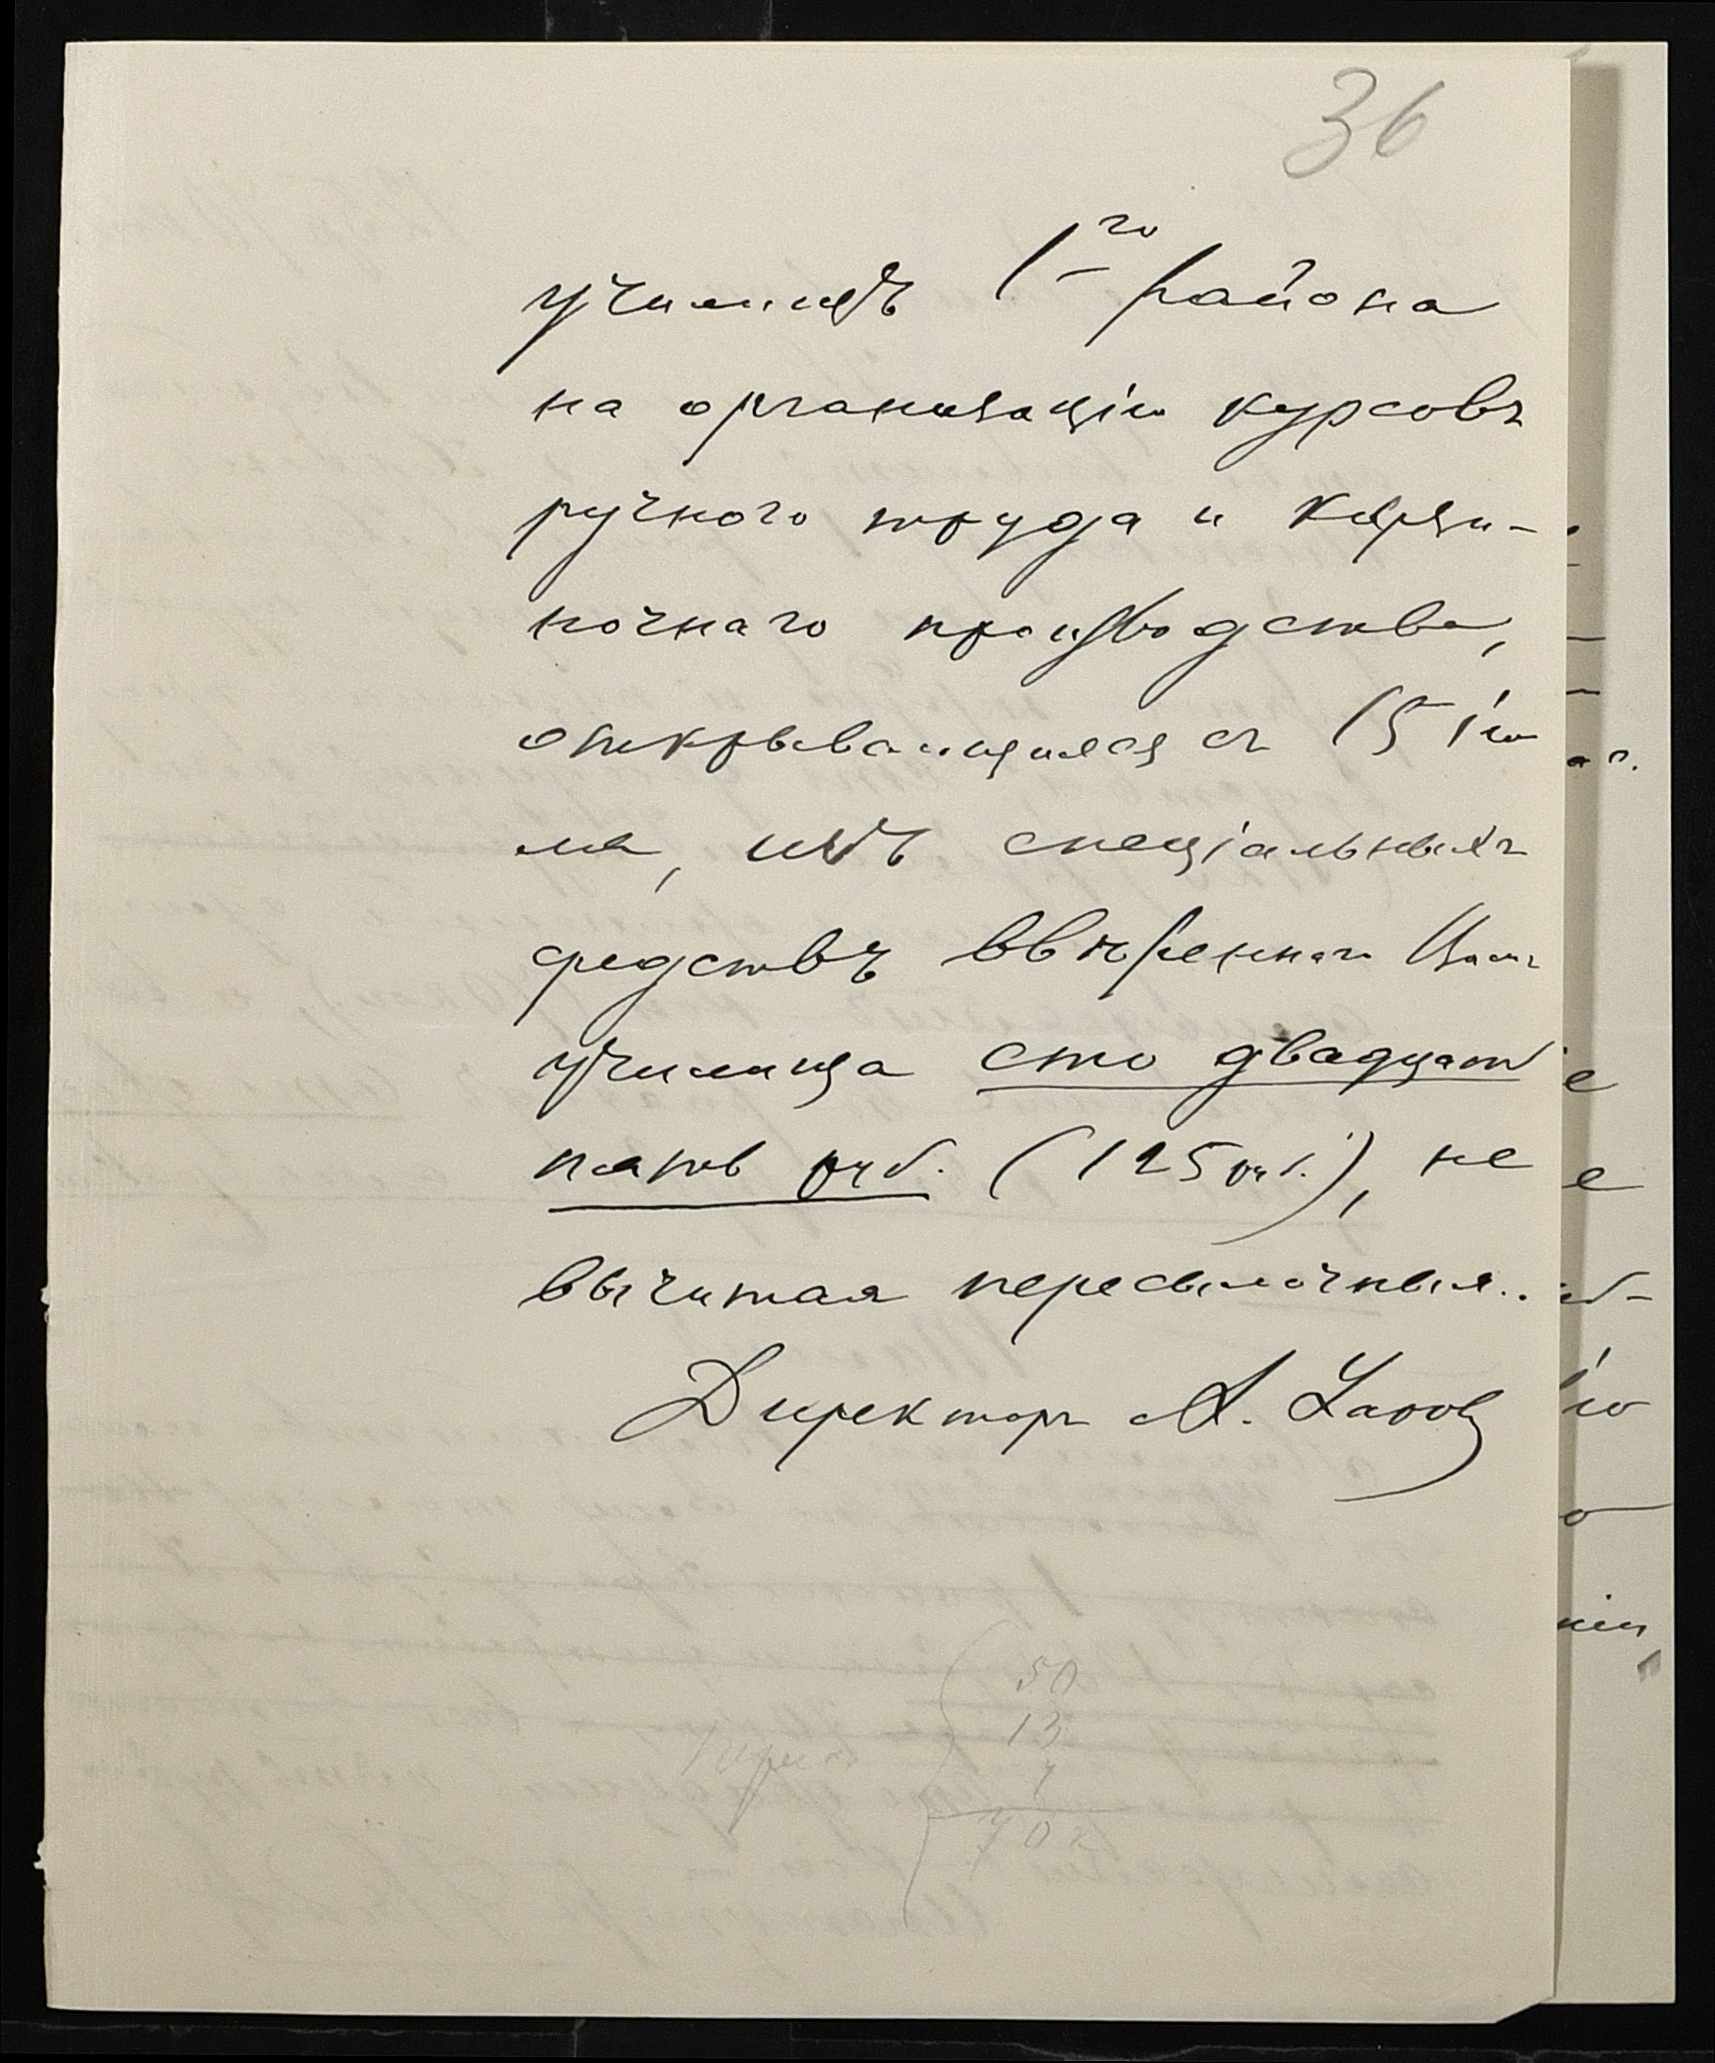 36
училищъ 1го района
на организацію курсовъ
ручного труда и корзи-
ночнаго производства,
открывающихся съ 15 ію
ля, изъ спеціальныхъ
средствъ ввѣреннаго
училища сто двадцать
пять руб. (125 руб.), не
вычитая пересылочныя.
Директоръ А.
50
13
7
70 к